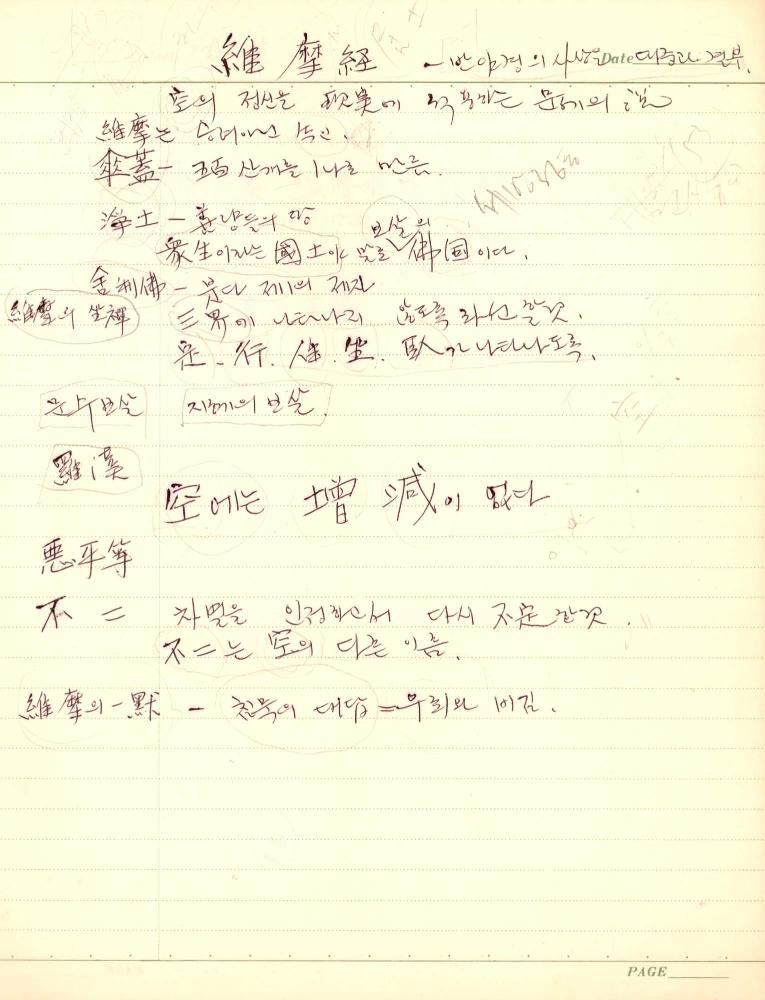 維摩経 - 반야경의 사상을 Date 대중과 결부.
空의 정신을 現実에 적용하는 문제의 說
維摩는 승려아닌 속인.
傘蓋 - 五百 산개를 1나로 만듬.
淨土 - 善남들의 땅
보살의
衆生이라는 國土야 말로 佛国 이다.
舍利佛 - 붓다 제1의 제자
維摩의 坐禪 三界에 나타나지 않도록 좌선 할것.
行. 住. 坐. 臥가 나타나도록.
문수보살 지혜의 보살.
羅漢
空에는 增減이 없다
悪平等
不二 차별을 인정하고서 다시 不定 할것.
不二는 空의 다른 이름.
維摩의 一默 - 침묵의 대답 = 우뢰와 비김.
PAGE